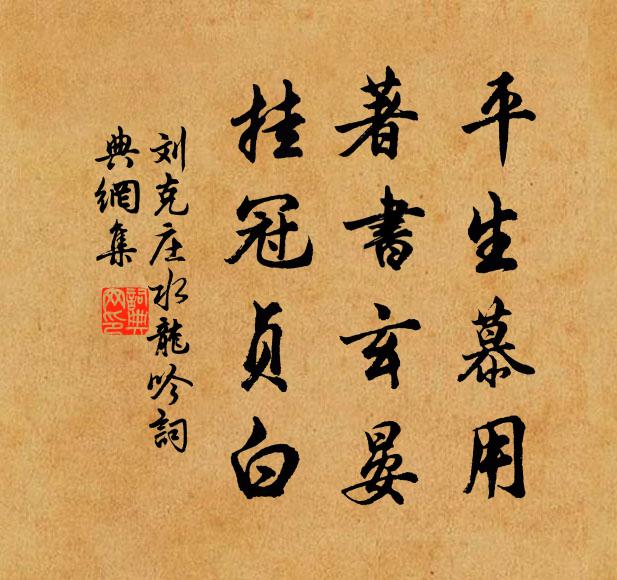 平生慕用
著書玄晏
挂冠貞白
刘克庄水龍吟詞
典網集
詞典網印